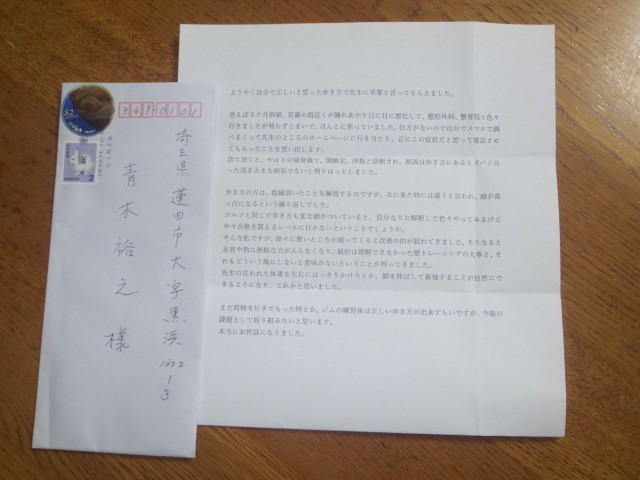 349-0101
埼玉県蓮田市大字黒浜
1322-1-3
青木裕之様
82
2
NIPPON
ようやく自分で正しいと思った歩き方で先生に卒業と言ってもらえました。
思えば3ケ月前頃、足裏の指近くが腫れあがり日に日に悪化して、整形外科、整骨院と色々
行きましたが判らずじまいで、ほんとに焦っていました。仕方がないので自分でスマホで調
べまくって先生のところのホームページに行き当たり、正にこの症状だと思って電話させ
てもらったことを思い出します。
診て頂くと、やはり中頭骨痛で、開帳足、浮指と診断され、原因は歩き方にあるとズバリ言
った頂き大きな病気でないと判りほっとしました。
歩き方の方は、指摘頂いたことを練習するのですが、次に来た時には違うと言われ、頭が真
っ白になるという繰り返しでした。
ゴルフと同じで歩き方も変な癖がついていると、自分なりに解釈して色々やってみるけど
中々合格を貰えるレベルに行かないということでしょうか。
そんな私ですが、徐々に悪いところが減ってくると改善の的が絞れてきました。そうなると
足首や指に無駄な力が入らなくなり、最初は理解できなかった壁トレーニングの大事さ、そ
れもどういう風にしないと意味がないということが判ってきました。
先生の言われた体重を左右にはっきりかけろとか、膝を伸ばして着地することが自然にで
きるようになり、これかと思いました。
まだ荷物を片手でもった時とか、ジムの練習後は正しい歩き方が出来ずらいですが、今後の
課題として取り組みたいと思います。
本当にお世話になりました。